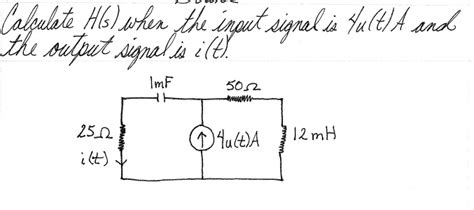 Calculate H(s) when the input signal is 4u(t)A and
the output signal is i(t).
1mF
50Ω
25Ω
4u(t)A
12mH
i(t)